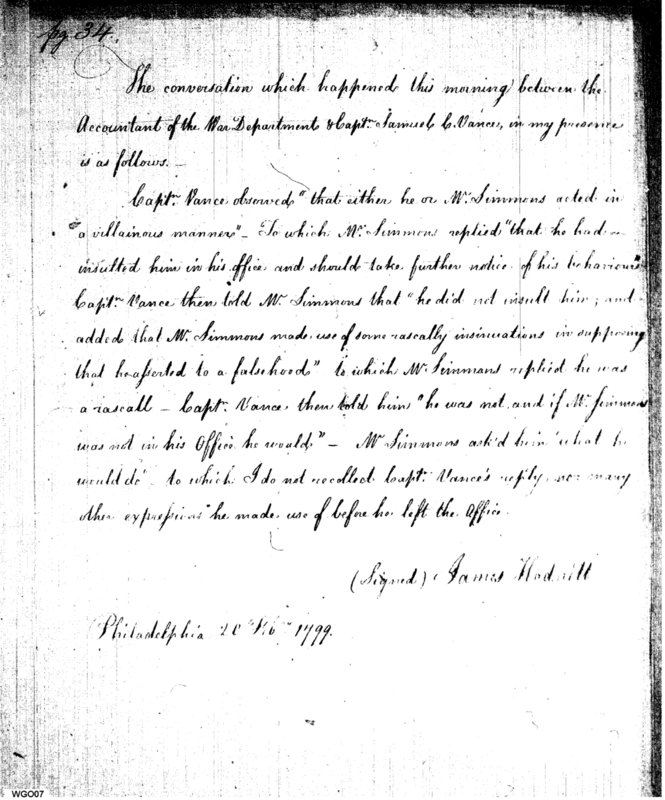 pg 34.
The conversation which happened this morning between the
Accountant of the War Department & Captn. Samuel C. Vance, in my presence
is as follows. —
Captn. Vance observed "that either he or Mr. Simmons acted in
a villainous manner" — To which Mr. Simmons replied "that he had —
insulted him in his office and should take further notice of his behaviour"
Captn. Vance then told Mr. Simmons that "he did not insult him; and
added that Mr. Simmons made use of some rascally insinuations in supposing
that he asserted to a falsehood" to which Mr. Simmans replied he was
a rascall — Captn. Vance then told him "he was not, and if Mr. Simmons
was not in his Office he would" — Mr Simmons ask'd him 'what he
would do' to which I do not recollect Captn. Vance's reply, nor many
other expressions he made use of before he left the Office.
(Signed) James Hodnett
Philadelphia 1799.
WGO07